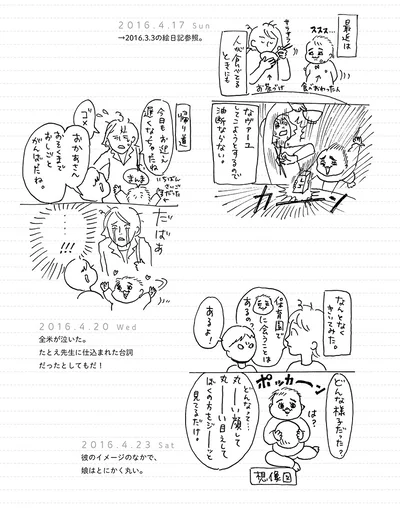 2016.4.17 Sun
→2016.3.3の絵日記参照。
最近は
ススス…
サラサラ
人が食べてる
ときにも
お茶づけ
食べおわった人
なヴァーユ
してこようとするので
油断ならない!
ガーーン
帰り道
今日もお迎え
遅くなっちゃったね
ゴメ
まんま
いちばん
さいご
だった
おかあさん
おそくまで
おしごと
がんばったね。
…
…!!
だばあ
2016.4.20 Wed
全米が泣いた。
たとえ先生に仕込まれた台詞
だったとしてもだ!
なんとなく
きいてみた。
保育園で
に会うことは
あるの?
あるよ!
どんな様子だった?
は?
ポッカーン
どんなって…
丸ーい顔して
丸ーい目えして
ぼくの方をジーッと
見てるだけ。
想像図
2016.4.23 Sat
彼のイメージのなかで、
娘はとにかく丸い。